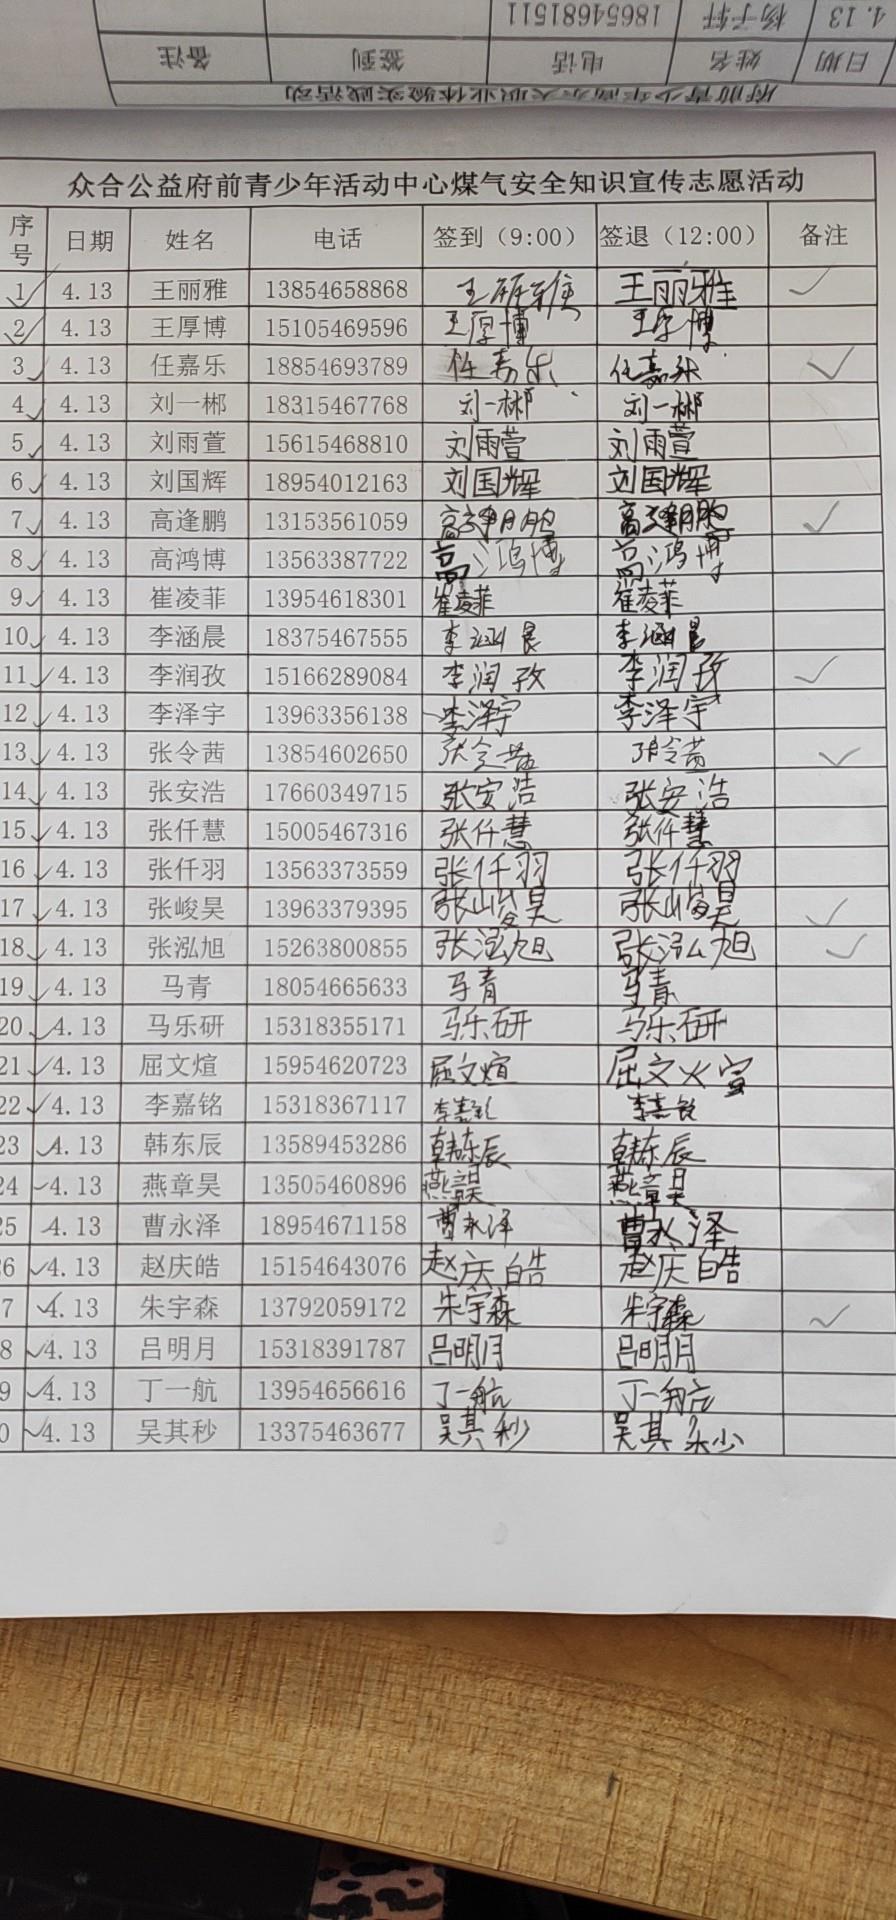 4.13 杨子轩 18654681511
日期 姓名 电话 签到 备注
众合公益府前青少年活动中心煤气安全知识宣传志愿活动
序号 日期 姓名 电话 签到（9:00） 签退（12:00） 备注
1 4.13 王丽雅 13854658868 王丽雅 王丽雅 ✓
2 4.13 王厚博 15105469596 王厚博 王厚博
3 4.13 任嘉乐 18854693789 任嘉乐 任嘉乐 ✓
4 4.13 刘一郴 18315467768 刘一郴 刘一郴
5 4.13 刘雨萱 15615468810 刘雨萱 刘雨萱
6 4.13 刘国辉 18954012163 刘国辉 刘国辉
7 4.13 高逢鹏 13153561059 高逢鹏 高逢鹏 ✓
8 4.13 高鸿博 13563387722 高鸿博 高鸿博
9 4.13 崔凌菲 13954618301 崔凌菲 崔凌菲
10 4.13 李涵晨 18375467555 李涵晨 李涵晨
11 4.13 李润孜 15166289084 李润孜 李润孜 ✓
12 4.13 李泽宇 13963356138 李泽宇 李泽宇
13 4.13 张令茜 13854602650 张令茜 张令茜 ✓
14 4.13 张安浩 17660349715 张安浩 张安浩
15 4.13 张仟慧 15005467316 张仟慧 张仟慧
16 4.13 张仟羽 13563373559 张仟羽 张仟羽
17 4.13 张峻昊 13963379395 张峻昊 张峻昊 ✓
18 4.13 张泓旭 15263800855 张泓旭 张泓旭 ✓
19 4.13 马青 18054665633 马青 马青
20 4.13 马乐研 15318355171 马乐研 马乐研
21 4.13 屈文煊 15954620723 屈文煊 屈文煊
22 4.13 李嘉铭 15318367117 李嘉铭 李嘉铭
23 4.13 韩东辰 13589453286 韩东辰 韩东辰
24 4.13 燕章昊 13505460896 燕章昊 燕章昊
25 4.13 曹永泽 18954671158 曹永泽 曹永泽
6 4.13 赵庆皓 15154643076 赵庆皓 赵庆皓
7 4.13 朱宇森 13792059172 朱宇森 朱宇森 ✓
8 4.13 吕明月 15318391787 吕明月 吕明月
9 4.13 丁一航 13954656616 丁一航 丁一航
0 4.13 吴其秒 13375463677 吴其秒 吴其秒